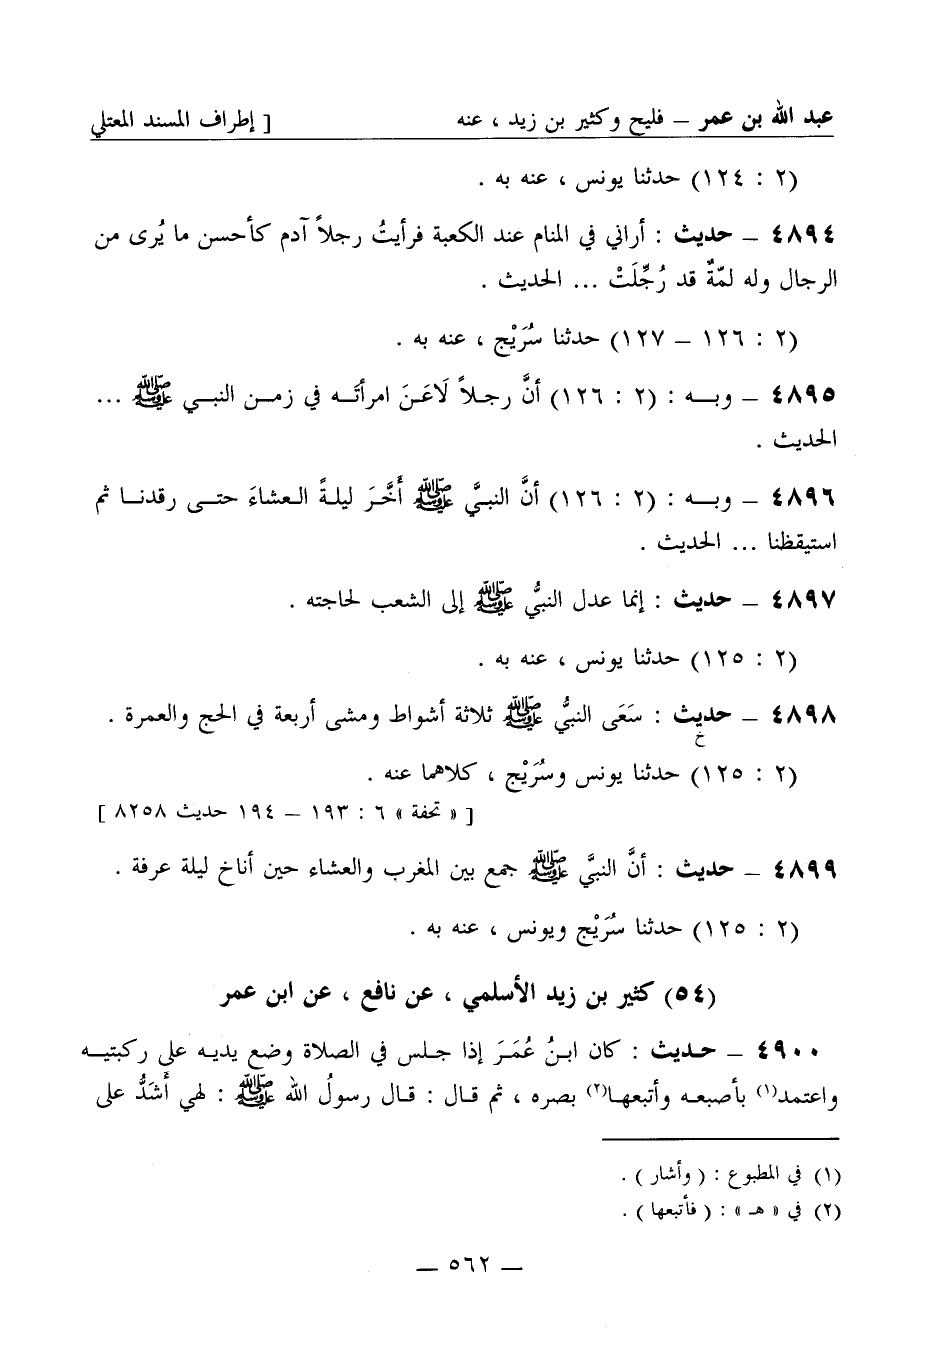 عبد الله بن عمر – فليح وكثير بن زيد ، عنه [ إطراف المسند المعتلي
(٢ : ١٢٤) حدثنا يونس ، عنه به .
٤٨٩٤ – حديث : أراني في المنام عند الكعبة فرأيتُ رجلاً آدم كأحسن ما يُرى من
الرجال وله لمّةٌ قد رُجِّلَتْ ... الحديث .
(٢ : ١٢٦ – ١٢٧) حدثنا سُرَيْج ، عنه به .
٤٨٩٥ – وبـه : (٢ : ١٢٦) أنَّ رجـلاً لَاعَنَ امرأتَـه في زمـن النبـي ﷺ ...
الحديث .
٤٨٩٦ – وبـه : (٢ : ١٢٦) أنَّ النبيَّ ﷺ أَخَّرَ ليلـةً العـشاءَ حتـى رقدنـا ثم
استيقظنا ... الحديث .
٤٨٩٧ – حديث : إنما عدل النبيُّ ﷺ إلى الشعب لحاجته .
(٢ : ١٢٥) حدثنا يونس ، عنه به .
٤٨٩٨ – حديث : سَعَى النبيُّ ﷺ ثلاثة أشواط ومشى أربعة في الحج والعمرة .
خ
(٢ : ١٢٥) حدثنا يونس وسُرَيْج ، كلاهما عنه .
[ « تحفة » ٦ : ١٩٣ – ١٩٤ حديث ٨٢٥٨ ]
٤٨٩٩ – حديث : أنَّ النبيَّ ﷺ جمع بين المغرب والعشاء حين أناخ ليلة عرفة .
(٢ : ١٢٥) حدثنا سُرَيْج ويونس ، عنه به .
(٥٤) كثير بن زيد الأسلمي ، عن نافع ، عن ابن عمر
٤٩٠٠ – حـديث : كان ابـنُ عُمَـرَ إذا جـلس في الصلاة وضع يديـه على ركبتيـه
واعتمد(١) بأصبعـه وأتبعهـا(٢) بصره ، ثم قـال : قـال رسولُ الله ﷺ : لهي أَشَدُّ على
(١) في المطبوع : ( وأشار ) .
(٢) في « هـ » : ( فأتبعها ) .
– ٥٦٢ –